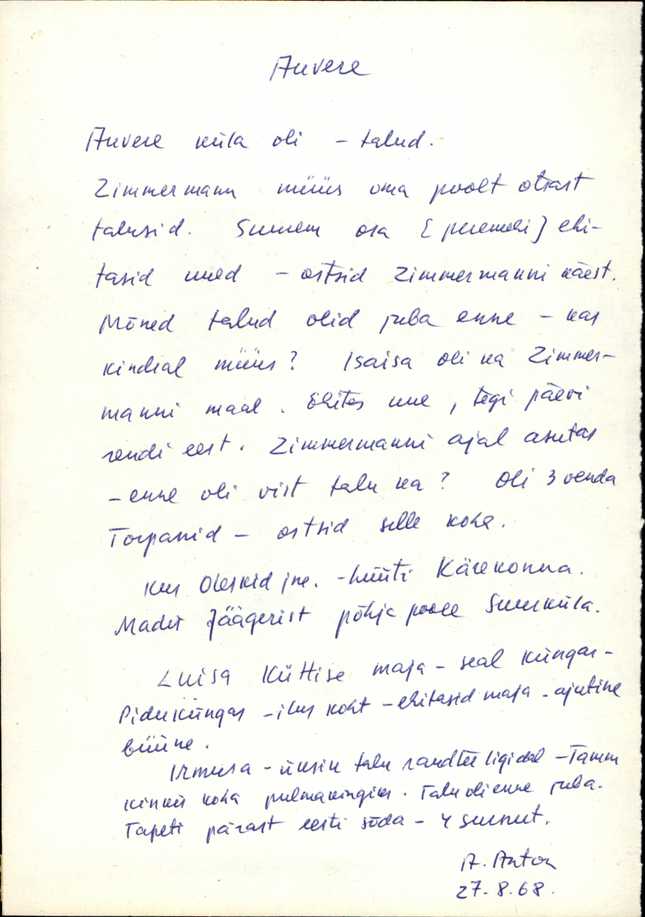 Auvere
Auvere küla oli - talud.
Zimmermann müüs oma poolt otsast
talusid. Suurem osa [peremehi] ehi-
tasid uued - ostsid Zimmermanni käest.
Mõned talud olid juba enne - kas
kindral müüs? Isaisa oli ka Zimmer-
manni maal. Ehitas uue, tegi päevi
rendi eest. Zimmermanni ajal asutas
- enne oli vist talu ka? Oli 3 venda
Torpanid - ostsid selle koha.
Kus Oleskid jne. - hüüti Kärekonna.
Madis Jäägerist põhja poole Suurküla.
Luisa Küttise maja - seal küngas -
Piduküngas - ilus koht - ehitasid maja - ajutine
büüne.
Irmusa - üksin talu raudtee ligidal - Tamm
kinkis koha pulmakingiks. Talu oli enne juba.
Tapeti pärast eesti sõda - 4 surnut.
A. Anton
27.8.68.